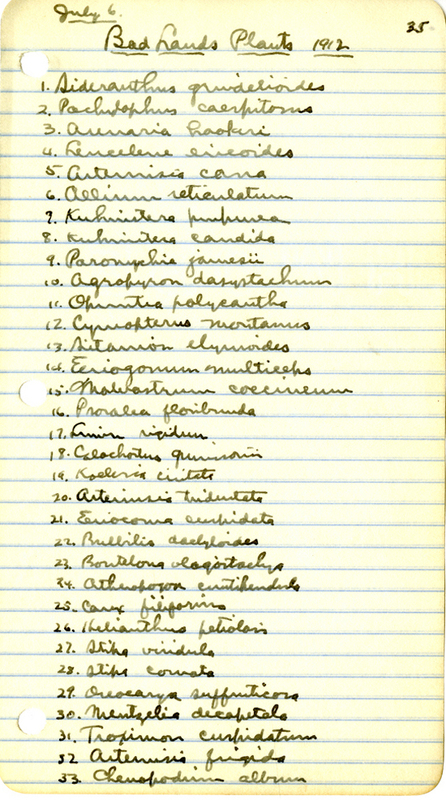 July 6.
35
Bad Lands Plants 1912
1. Sideranthus grindelioides
2. Pachylophus caespitosus
3. Arenaria hookeri
4. Leucelene ericoides
5. Artemisia cana
6. Allium reticulatum
7. Kuhnistera purpurea
8. Kuhnistera candida
9. Paronychia jamesii
10. Agropyron dasystachum
11. Opuntia polycantha
12. Cymopterus montanus
13. Sitanion elymoides
14. Eriogonum multiceps
15. Malvastrum coccineum
16. Psoralea floribunda
17. Linum rigidum
18. Calochotus gunnisonii
19. Koeleria cristata
20. Artemisia tridentata
21. Eriocoma cuspidata
22. Bulbilis dactyloides
23. Bouteloua oligostachya
24. Atheropogon curtipendula
25. Carex filiformis
26. Helianthus petiolaris
27. Stipa viridula
28. Stipa comata
29. Oreocarya suffruticosa
30. Mentzelia decapetala
31. Troximon cuspidatum
32 Artemisia frigida
33. Chenopodium album